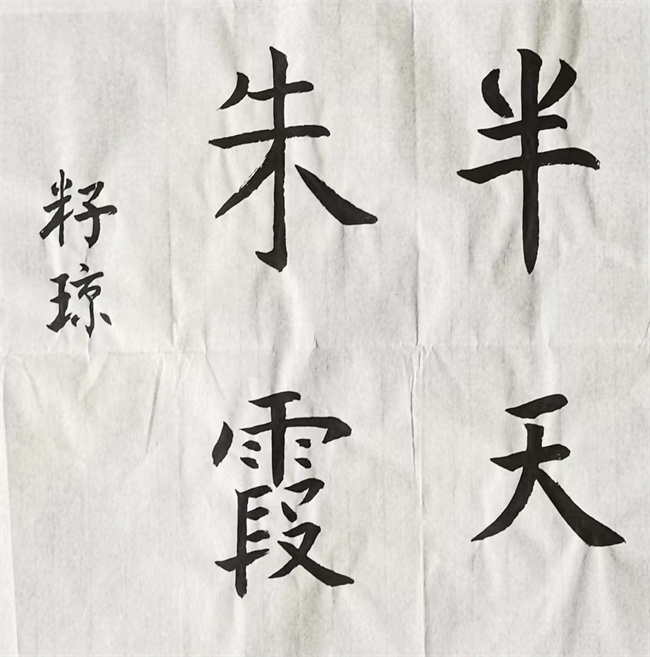 半天
朱霞
籽琼